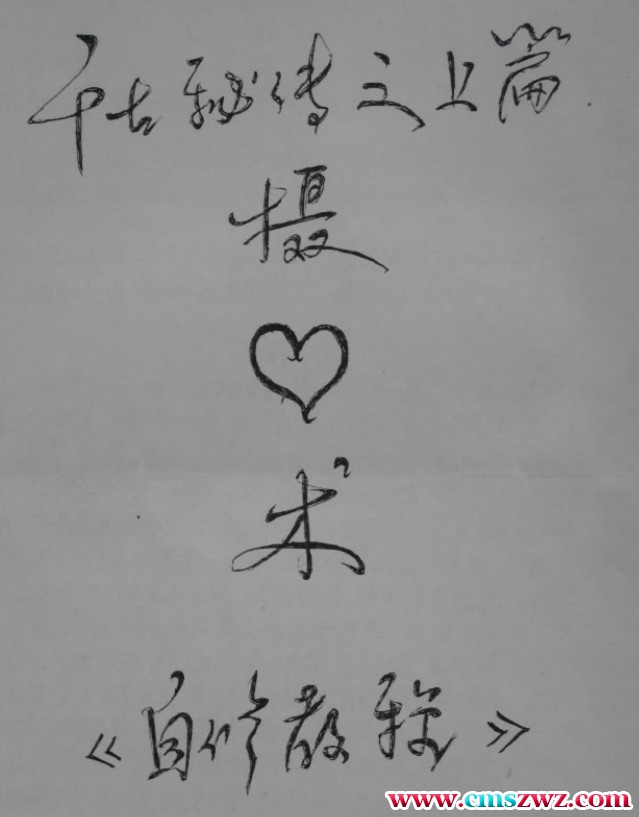 千古秘传之上篇
摄
♡
术
《自修教程》
www.cmszwz.com